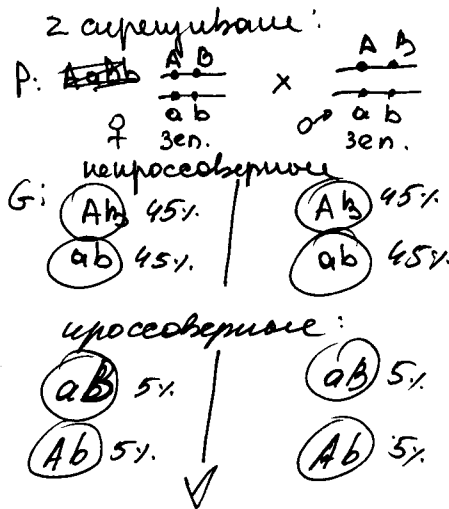 2 скрещивание:
P: AaBb A B × A B
a b a b
♀ зел. ♂ зел.
некроссоверное
G: AB 45% AB 45%
ab 45% ab 45%
кроссоверное:
aB 5% aB 5%
Ab 5% Ab 5%